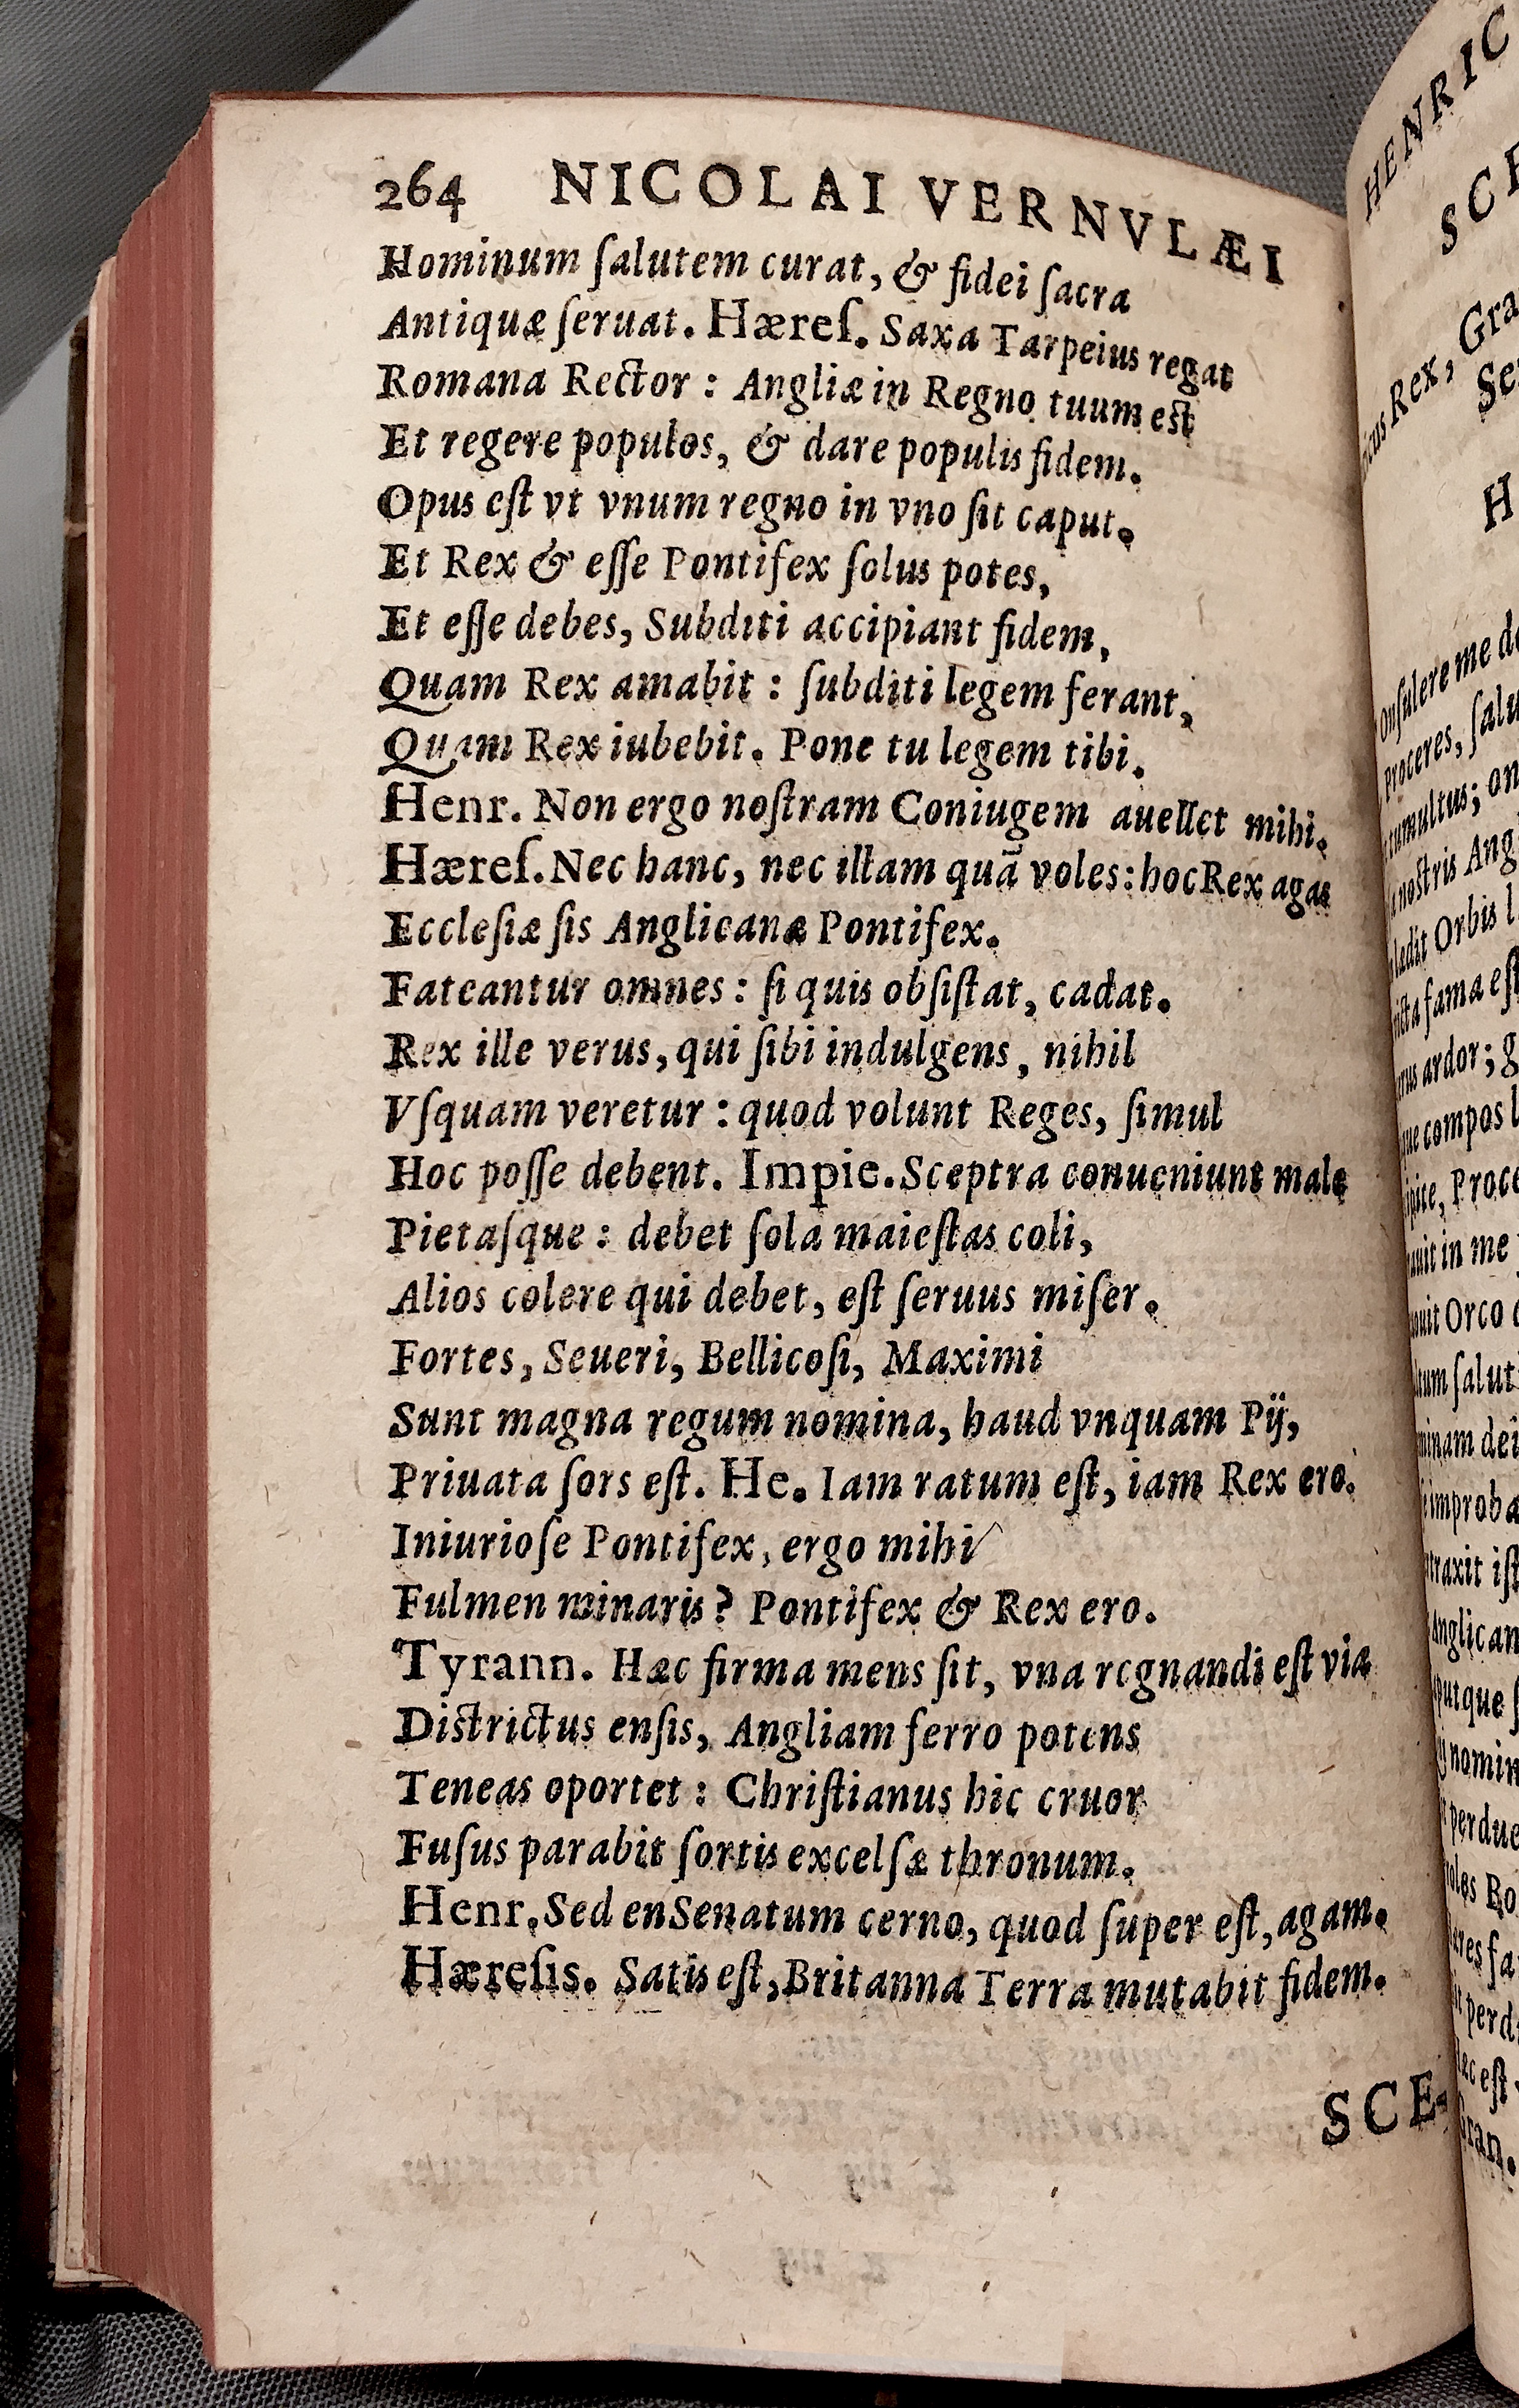 264 NICOLAI VERNVLÆI
Hominum ſalutem curat, & fidei ſacra
Antiquæ ſeruat. Hæreſ. Saxa Tarpeius regat
Romana Rector : Angliæ in Regno tuum est
Et regere populos, & dare populis fidem.
Opus eſt vt vnum regno in vno ſit caput.
Et Rex & eſſe Pontifex ſolus potes,
Et eſſe debes, Subditi accipiant fidem,
Quam Rex amabit : ſubditi legem ferant,
Quam Rex iubebit. Pone tu legem tibi.
Henr. Non ergo noſtram Coniugem auellet mihi.
Hæreſ. Nec hanc, nec illam quā voles: hoc Rex agas
Eccleſiæ ſis Anglicanæ Pontifex.
Fateantur omnes : ſi quis obſiſtat, cadat.
Rex ille verus, qui ſibi indulgens, nihil
Vſquam veretur : quod volunt Reges, ſimul
Hoc poſſe debent. Impie. Sceptra conueniunt male
Pietaſque : debet ſola maieſtas coli,
Alios colere qui debet, eſt ſeruus miſer.
Fortes, Seueri, Bellicoſi, Maximi
Sunt magna regum nomina, haud vnquam Pij,
Priuata ſors eſt. He. Iam ratum eſt, iam Rex ero.
Iniurioſe Pontifex, ergo mihi
Fulmen minaris? Pontifex & Rex ero.
Tyrann. Hæc firma mens ſit, vna regnandi eſt via
Districtus enſis, Angliam ferro potens
Teneas oportet : Chriſtianus hic cruor
Fuſus parabit ſortis excelſæ thronum.
Henr. Sed en Senatum cerno, quod ſuper eſt, agam.
Hæreſis. Satis eſt, Britanna Terra mutabit fidem.
SCE-
HENRIC
Rex, Gra
H
me
proceres,
tumultus; on
Orbis
fama eſt
ardor; g
compos
in me
Orco